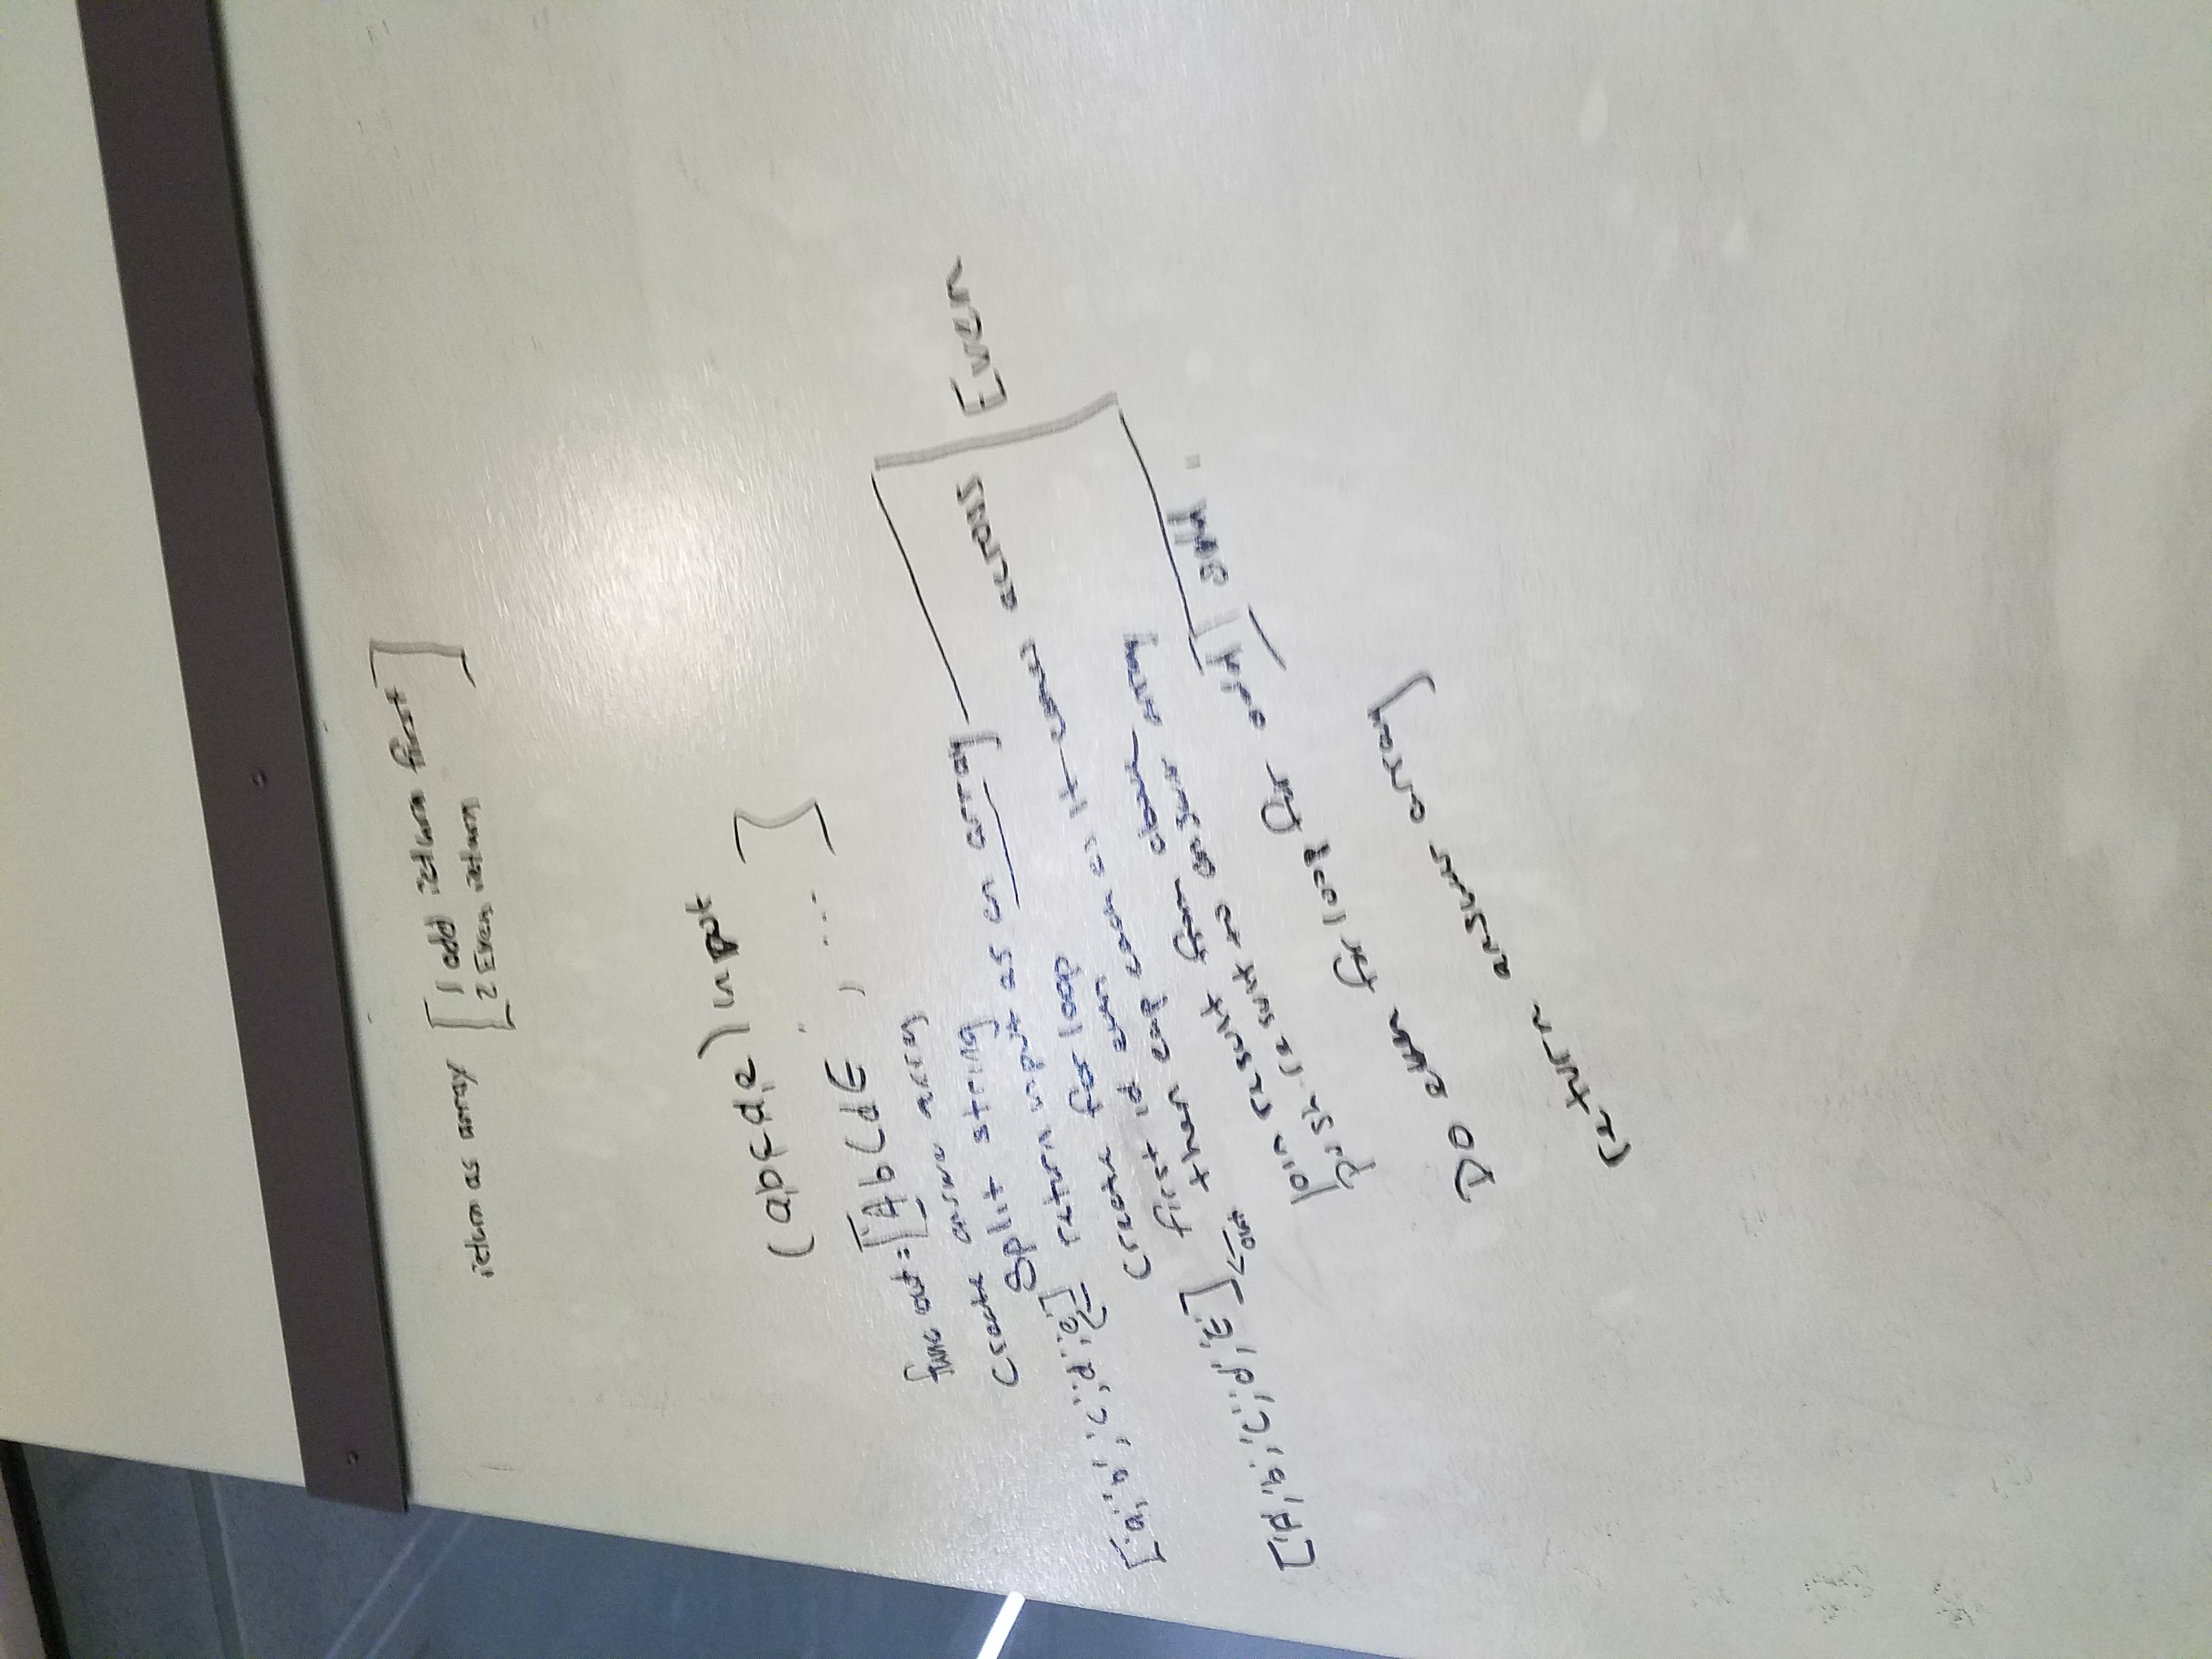 return as array [ 1 odd return first
2 Even return ]
(a,b,c,d,e) input
func out = ['AbCdE', ... ]
Create answe array
Split string
['a','b','c','d','e'] ← return input as an array
Create for loop
first id even
then cap each as it comes across
Even
['A','b','C','d','E'] ← out
join result from above
push result to answer array
Do even for loop for odd ] odd
return answer array